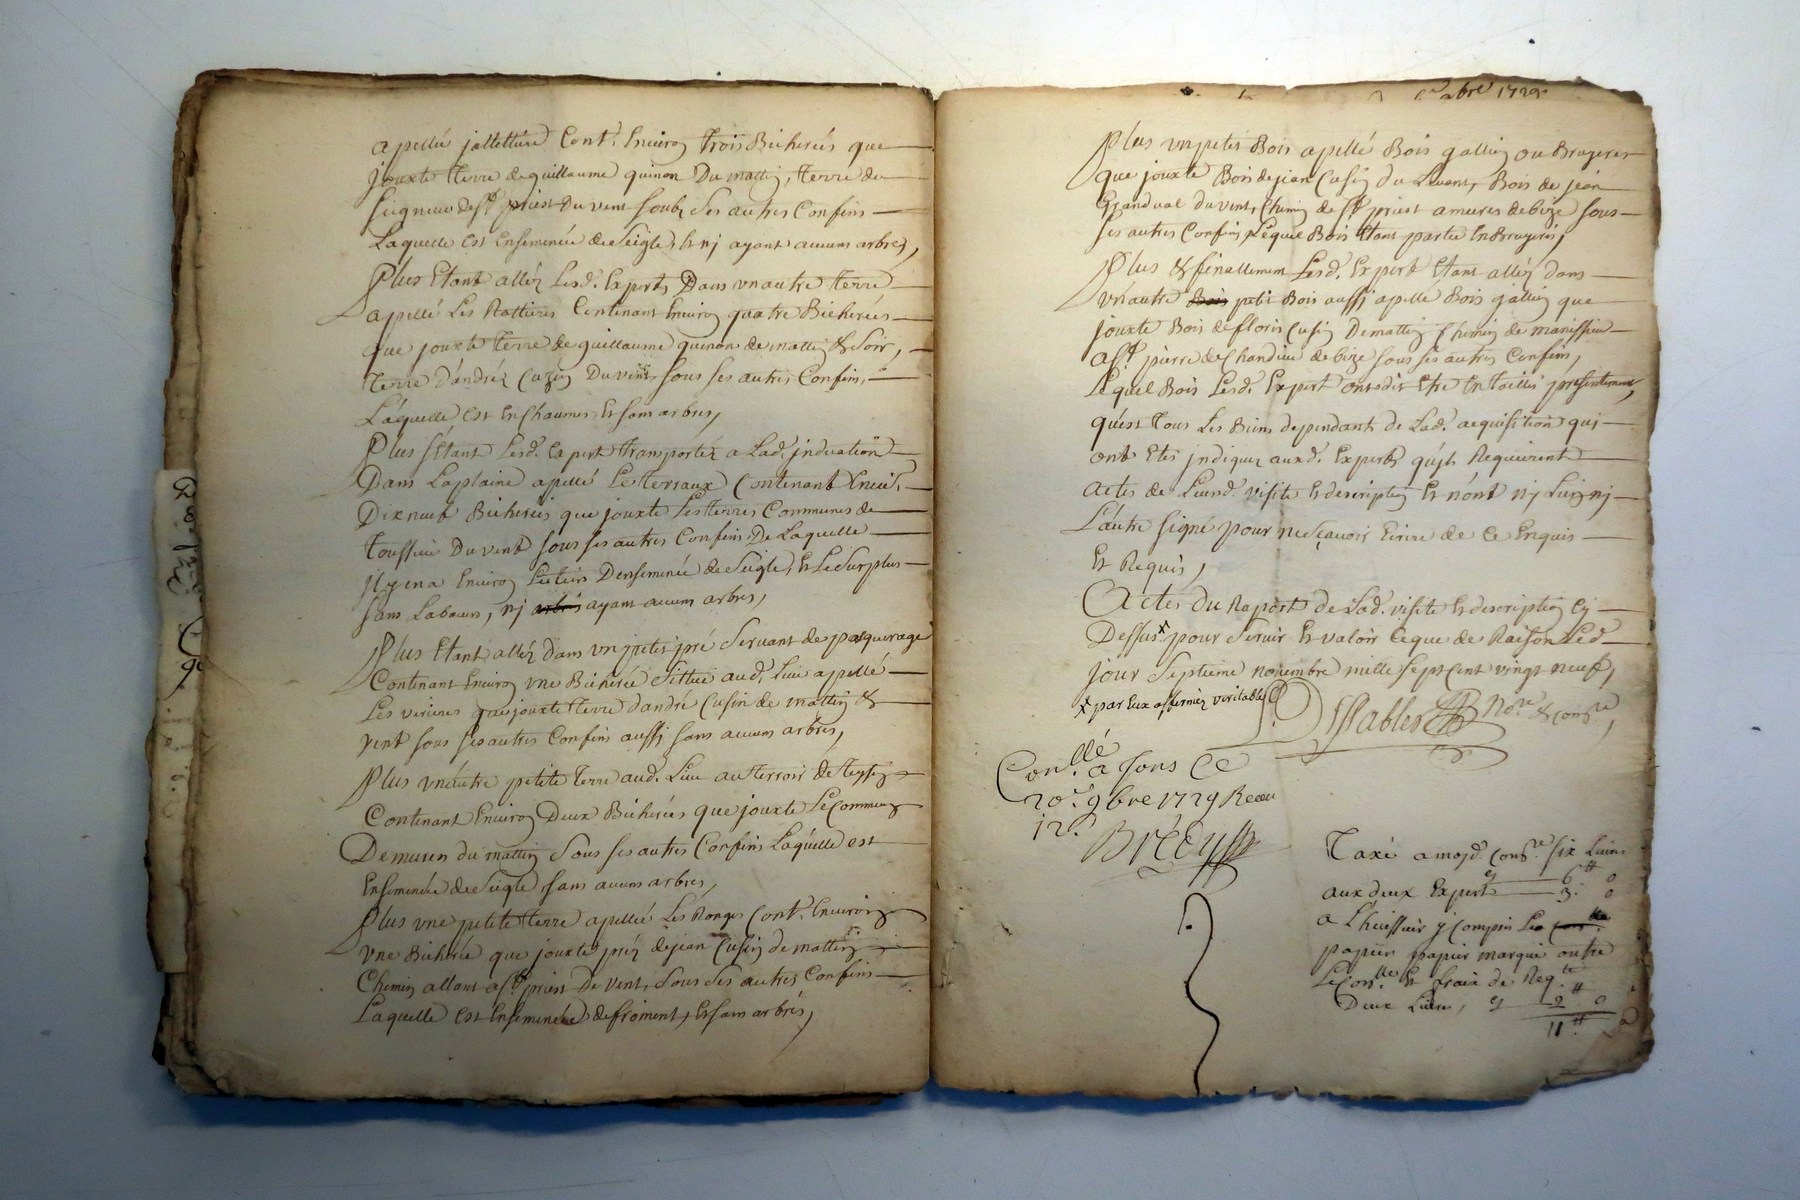 apellée jallettiere Cont.t Enuiron trois Bicherées que
jouxte terre de guillaume quinon Du mattin, terre du
seigneur de st priest Du vent soubz ses autres Confins
Laquelle est Ensemencée de seigle, Et nj ayant aucuns arbres,
Plus Etant alléz Lesd. Experts Dans vn autre terre
apellé Les Rattieres Contenant Enuiron quatre Bicherées
que jouxte terre de guillaume quinon de mattin & soir,
terre d'andréz Cuzin Du vent sous ses autres Confins,
Laquelle est En Chaumes Et sans arbres,
Plus s'étant Lesd. Expert transportéz a Lad. indication
Dans La plaine apellé Le terraux Contenant Enuir.
Dix neuf Bicherées que jouxte Les terres Communes de
toussieu Du vent sous ses autres Confins De Laquelle
Il y en a Enuiron Le tiers D'ensemencée de seigle, Et Le surplus
sans Labours, nj arbrés ayant aucuns arbres,
Plus Etant alléz dans vn petit pré seruant de paquerage
Contenant Enuiron vne Bicherée sittué aud. Lieu apellé
Les que jouxte terre d'andré Cusin de mattin &
vent sous ses autres Confins aussi sans aucuns arbres,
Plus vn autre petite terre aud. Lieu au terroir de
Contenant Enuiron Deux Bicherées que jouxte Le Commun
De mures du mattin sous ses autres Confins Laquelle est
Ensemencée de seigle sans aucuns arbres,
Plus vne petite terre apellée Les Ronges Cont.t Enuiron
vne Bicherée que jouxte préz de jean Cusin de mattin
Chemin allant a st priest de vent, sous ses autres Confins
Laquelle est Ensemencée de froment, Et sans arbrés,
abre 1729
Plus vn petit Bois apellé Bois gallin ou Bruyeres
que jouxte Bois de jean Cusin du Leuant, Bois de jean
Grandual du vent, Chemin de st priest a mures de bize sous
ses autres Confins, Lequel Bois Etant partie En Bruyeres,
Plus & finallement Lesd. Expert Etant alléz dans
vn autre Bois petit Bois aussi apellé Bois gallin que
jouxte Bois de floris Cusin De mattin Chemin de manissieu
a st pierre de Chandieu de bize sous ses autres Confins,
Lequel Bois Lesd. Expert ont dit Etre En taillis présentement,
qu'est tous Les Biens dependants de Lad. acquisition qui
ont Etés indiquez auxd. Experts qu'ils Requierent
actes de Leurd. visite & description Et n'ont nj Lun nj
L'autre signé pour ne sçauoir Ecrire de Ce Enquis
Et Requis,
Actes Du Raport de Lad. visite Et description Cy
Dessus x pour seruir Et valoir Ce que de Raison Led.
jour septieme nouembre mille sept Cent vingt neuf,
x par Eux affermez veritables
Nore & Comre,
Conllé a sons Ce
20e 9bre 1729 Receu
12s.
Brédy
Taxé a mojd. Comre six Liures
Cy 6 # 0
aux deux Expert 3. 0
a L'huissier y Compris Les
papier papier marqué outre
Le Conlle Et fraix de Reqte
Deux Liures, Cy 2 # 0
11 #